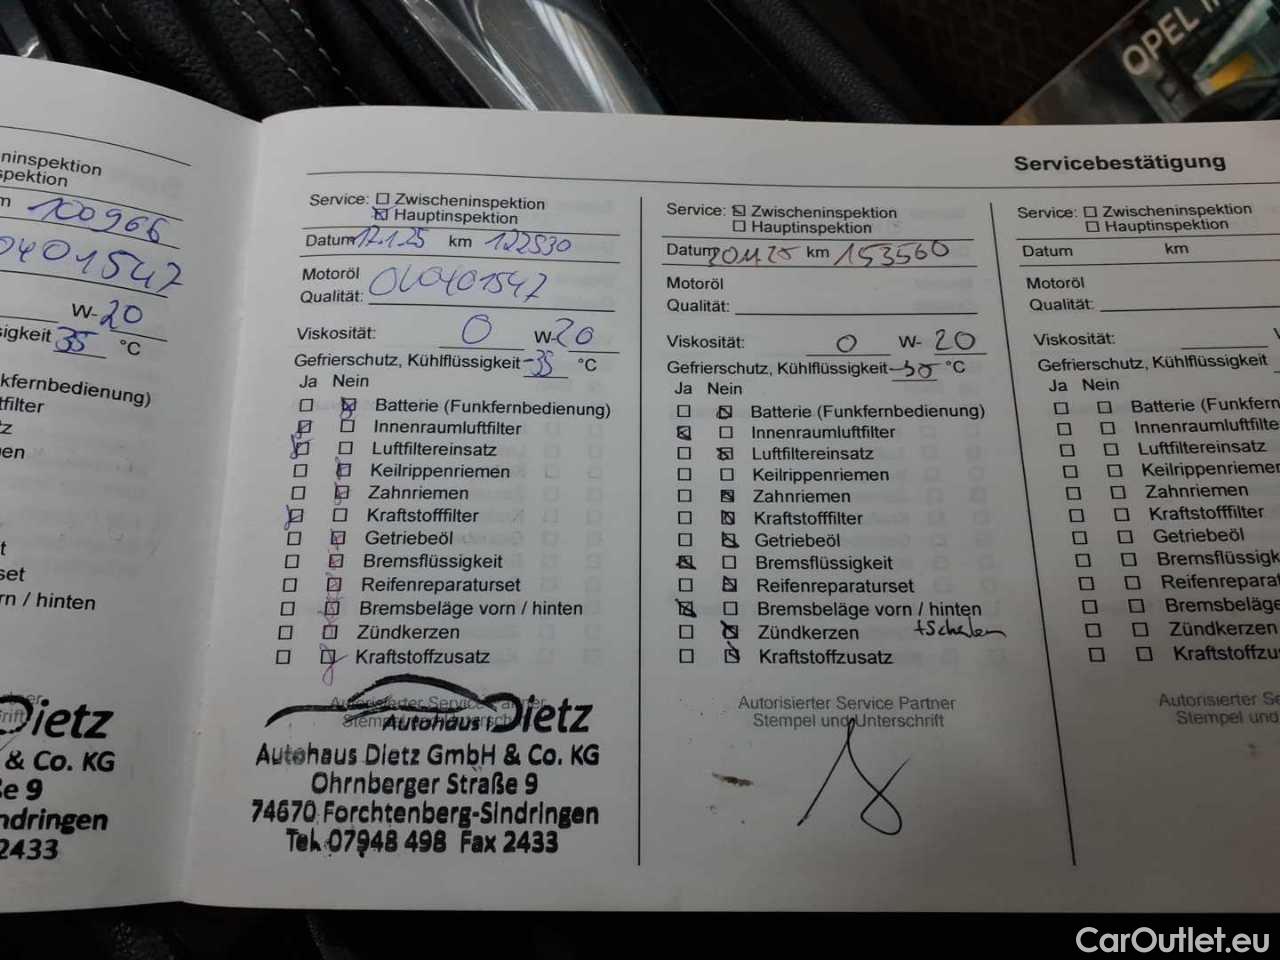 OPEL
Servicebestätigung
ninspektion
spektion
m 100966
0401547
W- 20
sigkeit 35 °C
kfernbedienung)
tfilter
tz
en
t
set
rn / hinten
Dietz
& Co. KG
ße 9
ndringen
2433
Service: Zwischeninspektion
Hauptinspektion
Datum 17.1.25 km 122530
Motoröl
Qualität: OV0401547
Viskosität: 0 W-20
Gefrierschutz, Kühlflüssigkeit -35 °C
Ja Nein
Batterie (Funkfernbedienung)
Innenraumluftfilter
Luftfiltereinsatz
Keilrippenriemen
Zahnriemen
Kraftstofffilter
Getriebeöl
Bremsflüssigkeit
Reifenreparaturset
Bremsbeläge vorn / hinten
Zündkerzen
Kraftstoffzusatz
Autorisierter Service Partner
Stempel und Unterschrift
Autohaus Dietz
Autohaus Dietz GmbH & Co. KG
Ohrnberger Straße 9
74670 Forchtenberg-Sindringen
Tel. 07948 498 Fax 2433
Service: Zwischeninspektion
Hauptinspektion
Datum km 153560
Motoröl
Qualität:
Viskosität: 0 W- 20
Gefrierschutz, Kühlflüssigkeit -30 °C
Ja Nein
Batterie (Funkfernbedienung)
Innenraumluftfilter
Luftfiltereinsatz
Keilrippenriemen
Zahnriemen
Kraftstofffilter
Getriebeöl
Bremsflüssigkeit
Reifenreparaturset
Bremsbeläge vorn / hinten
Zündkerzen
Kraftstoffzusatz
Autorisierter Service Partner
Stempel und Unterschrift
Service: Zwischeninspektion
Hauptinspektion
Datum km
Motoröl
Qualität:
Viskosität: W
Gefrierschutz, Kühlflüssigkeit
Ja Nein
Batterie (Funkfern
Innenraumluftfilte
Luftfiltereinsatz
Keilrippenriemen
Zahnriemen
Kraftstofffilter
Getriebeöl
Bremsflüssigk
Reifenreparat
Bremsbeläge
Zündkerzen
Kraftstoffzus
Autorisierter Se
Stempel und
CarOutlet.eu